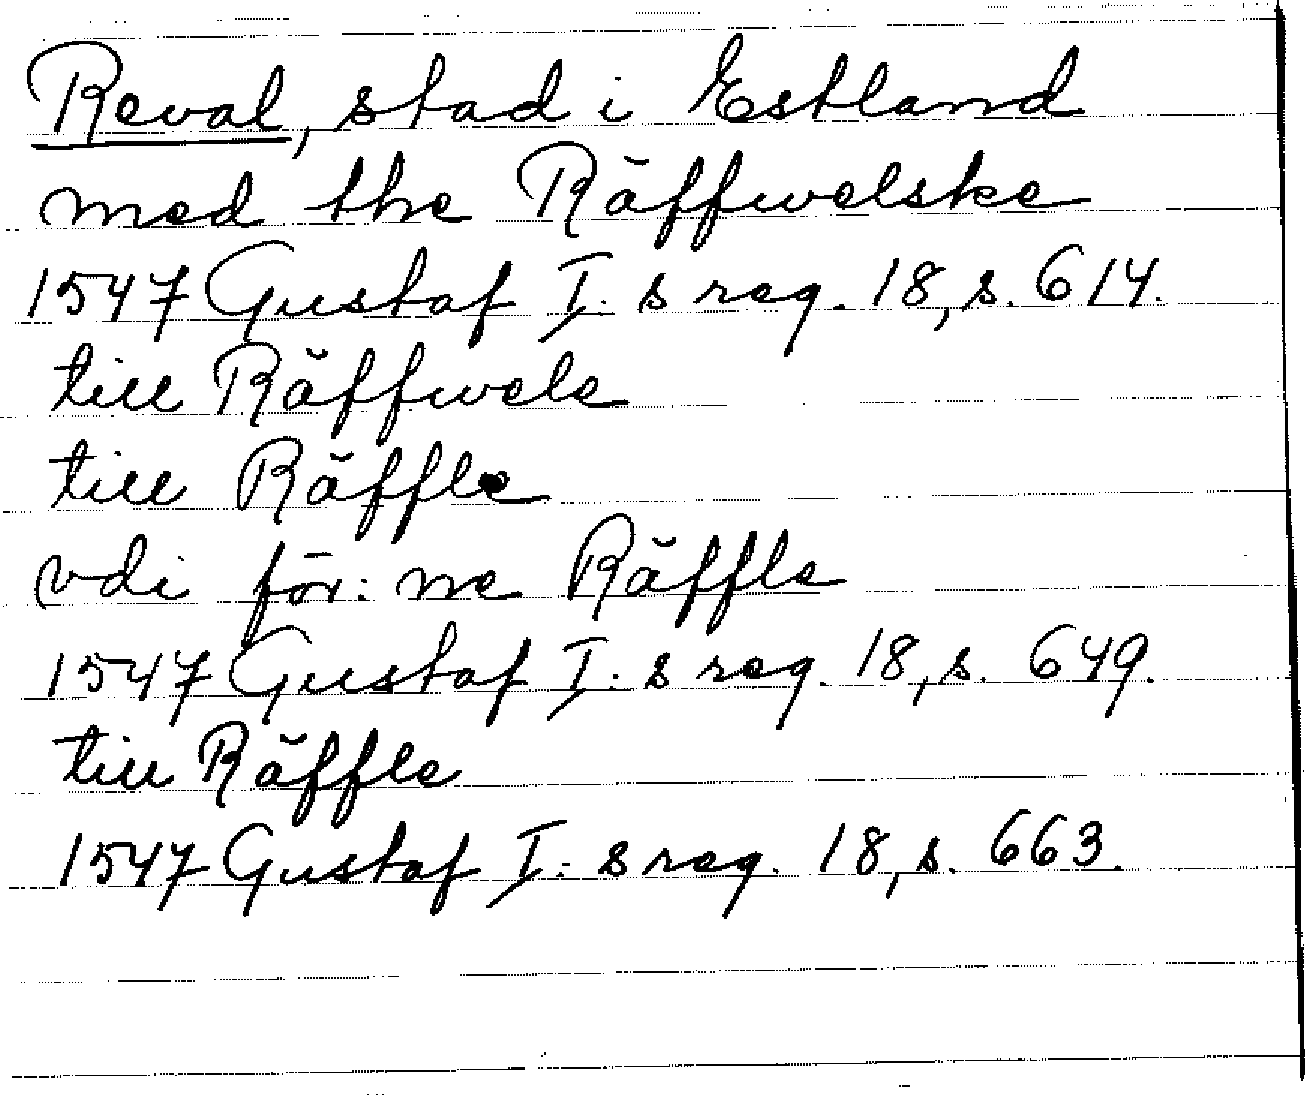 Reval, stad i Estland
med the Räffwelske
1547 Gustaf I:s reg. 18, s. 614.
till Räffwele
till Räffle
vdi för:ne Räffle
1547 Gustaf I:s reg. 18, s. 649.
till Räffle
1547 Gustaf I:s reg. 18, s. 663.